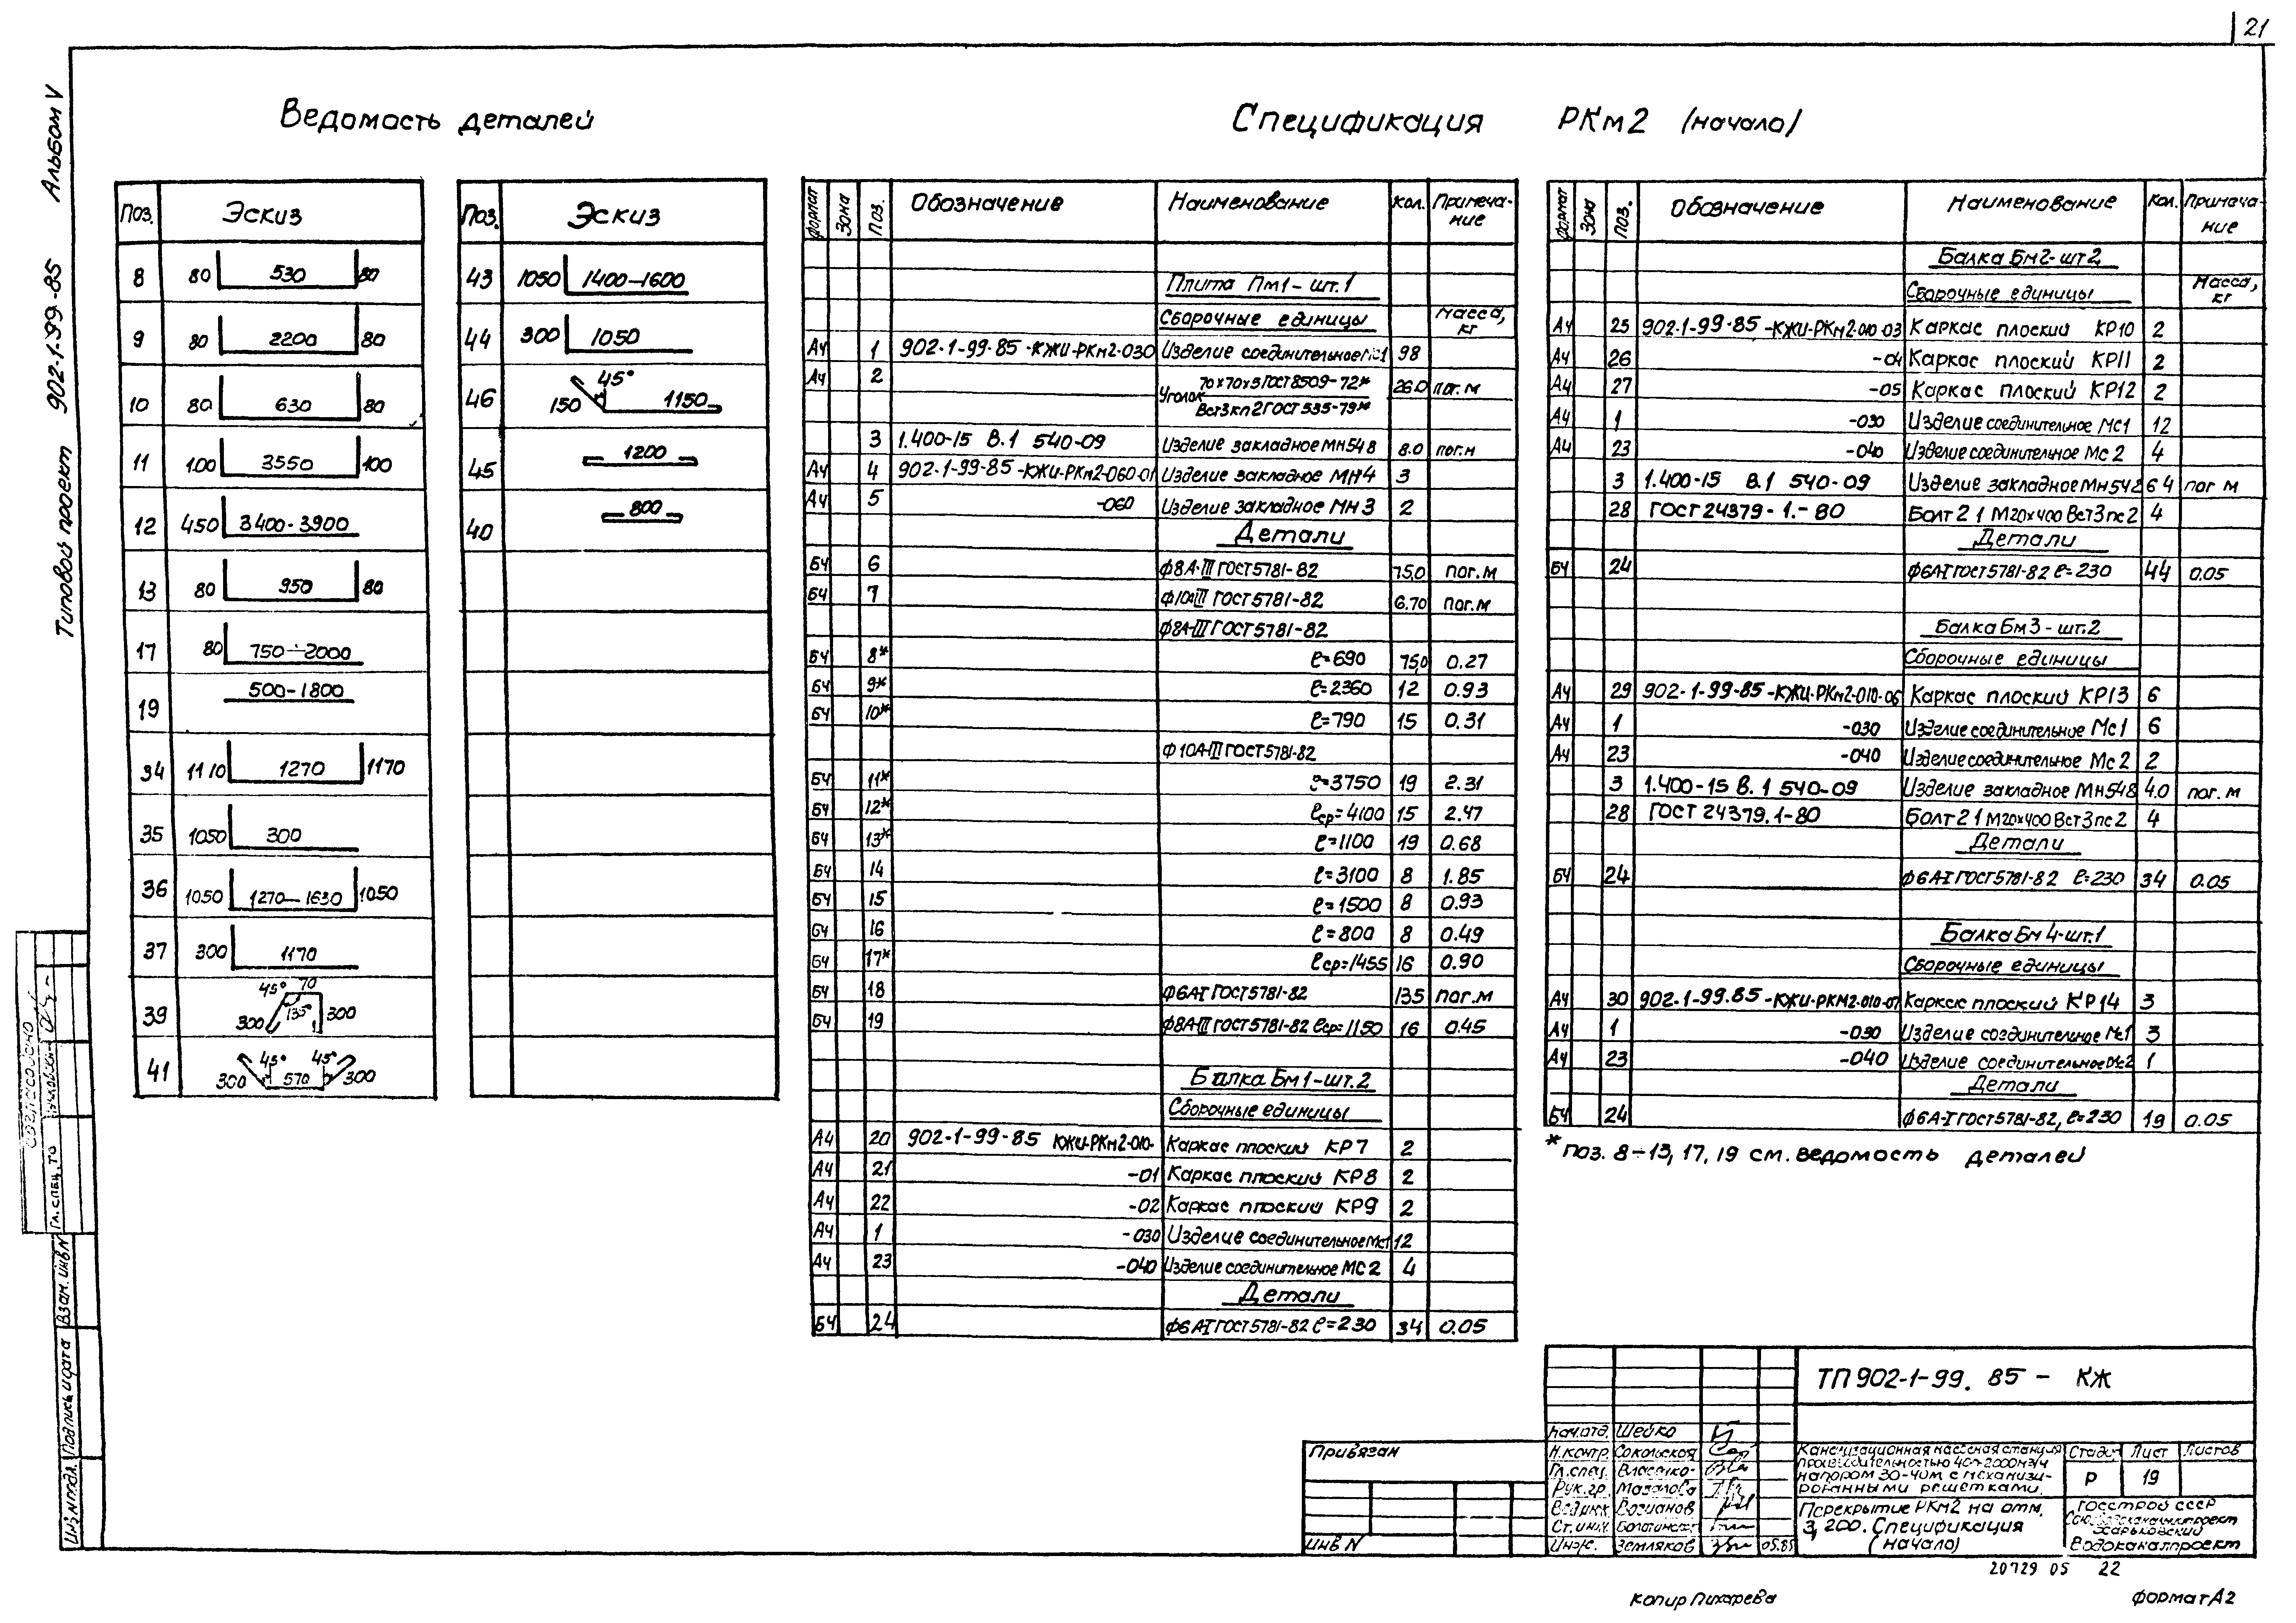 21
Альбом V
Типовой проект 902-1-99-85
Ведомость деталей
Поз. Эскиз
8 80 530 80
9 80 2200 80
10 80 630 80
11 100 3550 100
12 450 3400-3900
13 80 950 80
17 80 750-2000
19 500-1800
34 1170 1270 1170
35 1050 300
36 1050 1270-1630 1050
37 300 1170
39 45° 70 135° 300 300
41 45° 45° 300 570 300
Поз. Эскиз
43 1050 1400-1600
44 300 1050
46 45° 150 1150
45 1200
40 800
Спецификация РКм2 (начало)
формат Зона Поз. Обозначение Наименование Кол. Примечание
Плита Пм1-шт.1
Сборочные единицы Масса, кг
А4 1 902-1-99-85-КЖИ-РКм2-030 Изделие соединительное Мс1 98
А4 2 Уголок 70х70х5 ГОСТ 8509-72* Вст3кп2 ГОСТ 535-79* 26.0 пог. м
3 1.400-15 В.1 540-09 Изделие закладное Мн548 8.0 пог.м
А4 4 902-1-99-85-КЖИ-РКм2-060-01 Изделие закладное МН4 3
А4 5 -060 Изделие закладное МН3 2
Детали
БЧ 6 ф8А-III ГОСТ 5781-82 75.0 пог.м
БЧ 7 ф10А-III ГОСТ 5781-82 6.70 пог.м
ф8А-III ГОСТ 5781-82
БЧ 8* ℓ=690 75.0 0.27
БЧ 9* ℓ=2360 12 0.93
БЧ 10* ℓ=790 15 0.31
ф10А-III ГОСТ 5781-82
БЧ 11* ℓ=3750 19 2.31
БЧ 12* ℓср=4100 15 2.47
БЧ 13* ℓ=1100 19 0.68
БЧ 14 ℓ=3100 8 1.85
БЧ 15 ℓ=1500 8 0.93
БЧ 16 ℓ=800 8 0.49
БЧ 17* ℓср=1455 16 0.90
БЧ 18 ф6А-I ГОСТ 5781-82 135 пог.м
БЧ 19 ф8А-III ГОСТ 5781-82 ℓср=1150 16 0.45
Балка Бм1-шт.2
Сборочные единицы
А4 20 902-1-99-85 КЖИ-РКм2-010- Каркас плоский КР7 2
А4 21 -01 Каркас плоский КР8 2
А4 22 -02 Каркас плоский КР9 2
А4 1 -030 Изделие соединительное Мс1 12
А4 23 -040 Изделие соединительное МС2 4
Детали
БЧ 24 ф6А-I ГОСТ 5781-82 ℓ=230 34 0.05
формат Зона Поз. Обозначение Наименование Кол. Примечание
Балка Бм2-шт2
Сборочные единицы Масса, кг
А4 25 902-1-99-85-КЖИ-РКм2-010-03 Каркас плоский КР10 2
А4 26 -04 Каркас плоский КР11 2
А4 27 -05 Каркас плоский КР12 2
А4 1 -030 Изделие соединительное Мс1 12
А4 23 -040 Изделие соединительное Мс2 4
3 1.400-15 В.1 540-09 Изделие закладное Мн548 6.4 пог м
28 ГОСТ 24379-1.-80 Болт 2 1 М20х400 Вст3пс2 4
Детали
БЧ 24 ф6А-I ГОСТ 5781-82 ℓ=230 44 0.05
Балка Бм3-шт.2
Сборочные единицы
А4 29 902-1-99-85-КЖИ-РКм2-010-06 Каркас плоский КР13 6
А4 1 -030 Изделие соединительное Мс1 6
А4 23 -040 Изделие соединительное Мс2 2
3 1.400-15 В.1 540-09 Изделие закладное Мн548 4.0 пог. м
28 ГОСТ 24379.1-80 Болт 2 1 М20х400 Вст3пс2 4
Детали
БЧ 24 ф6А-I ГОСТ 5781-82 ℓ=230 34 0.05
Балка Бм4-шт.1
Сборочные единицы
А4 30 902-1-99.85-КЖИ-РКМ2-010-07 Каркас плоский КР14 3
А4 1 -030 Изделие соединительное Мс1 3
А4 23 -040 Изделие соединительное Мс2 1
Детали
БЧ 24 ф6А-I ГОСТ 5781-82, ℓ=230 19 0.05
* поз. 8-13, 17, 19 см. ведомость деталей
Согласовано
Гл. спец. ТО
Взам. инв N
Подпись и дата
Инв. N подл.
Привязан
Инв N
Нач.отд. Шейко
Н.контр Сокольская
Гл.спец. Власенко
Рук.гр.
Ст. инж.
Инж. Земляков 05.85
ТП 902-1-99. 85 - КЖ
Канализационная насосная станция
производительностью 400-2000 м3/ч
напором 30-40м с механизи-
рованными решетками.
Стадия Лист Листов
Р 19
Перекрытие РКм2 на отм.
3,200. Спецификация
(начало)
Госстрой СССР
Союзводоканалпроект
Харьковский
Водоканалпроект
20729 05 22
Копир Пихарева
формат А2